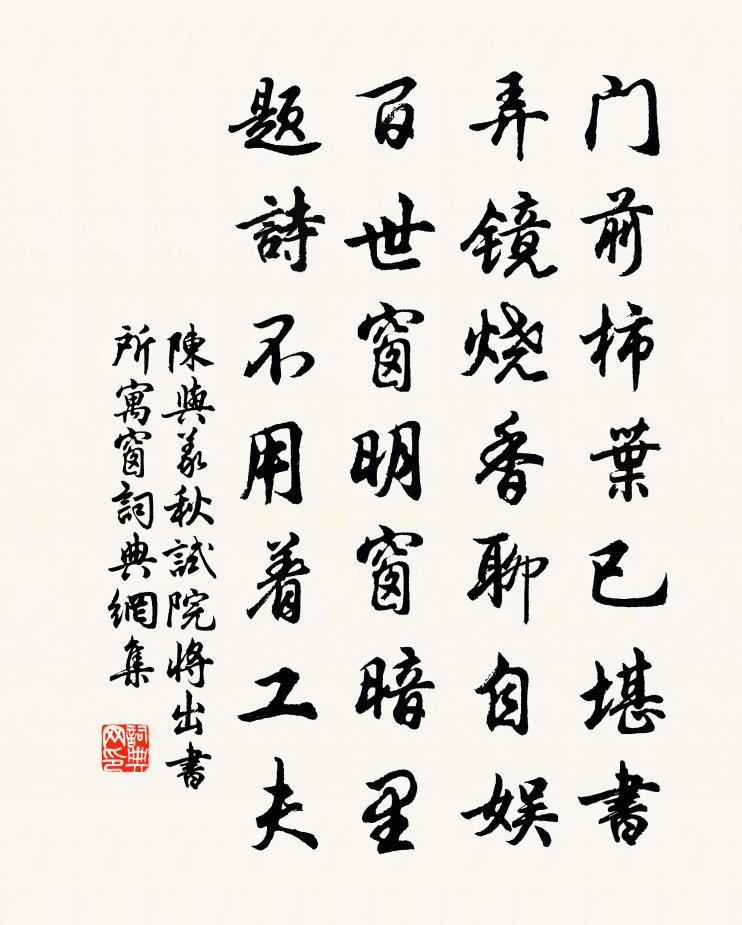 門前柿葉已堪書
弄镜烧香聊自娱
百世窗明窗暗里
题詩不用着工夫
陳與義秋試院將出書
所寓窗詞典網集
詞典网印